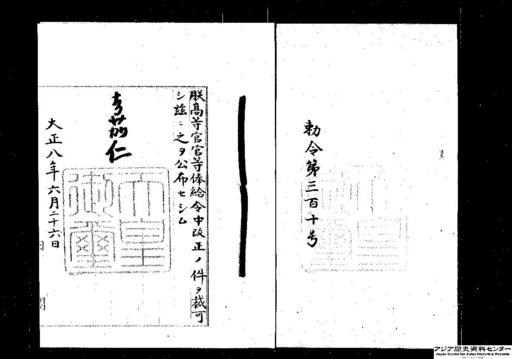 勅令第三百十号
朕高等官官等俸給令中改正ノ件ヲ裁可
シ茲ニ之ヲ公布セシム
嘉仁
天皇御璽
大正八年六月二十六日
アジア歴史資料センター
Japan Center for Asian Historical Records